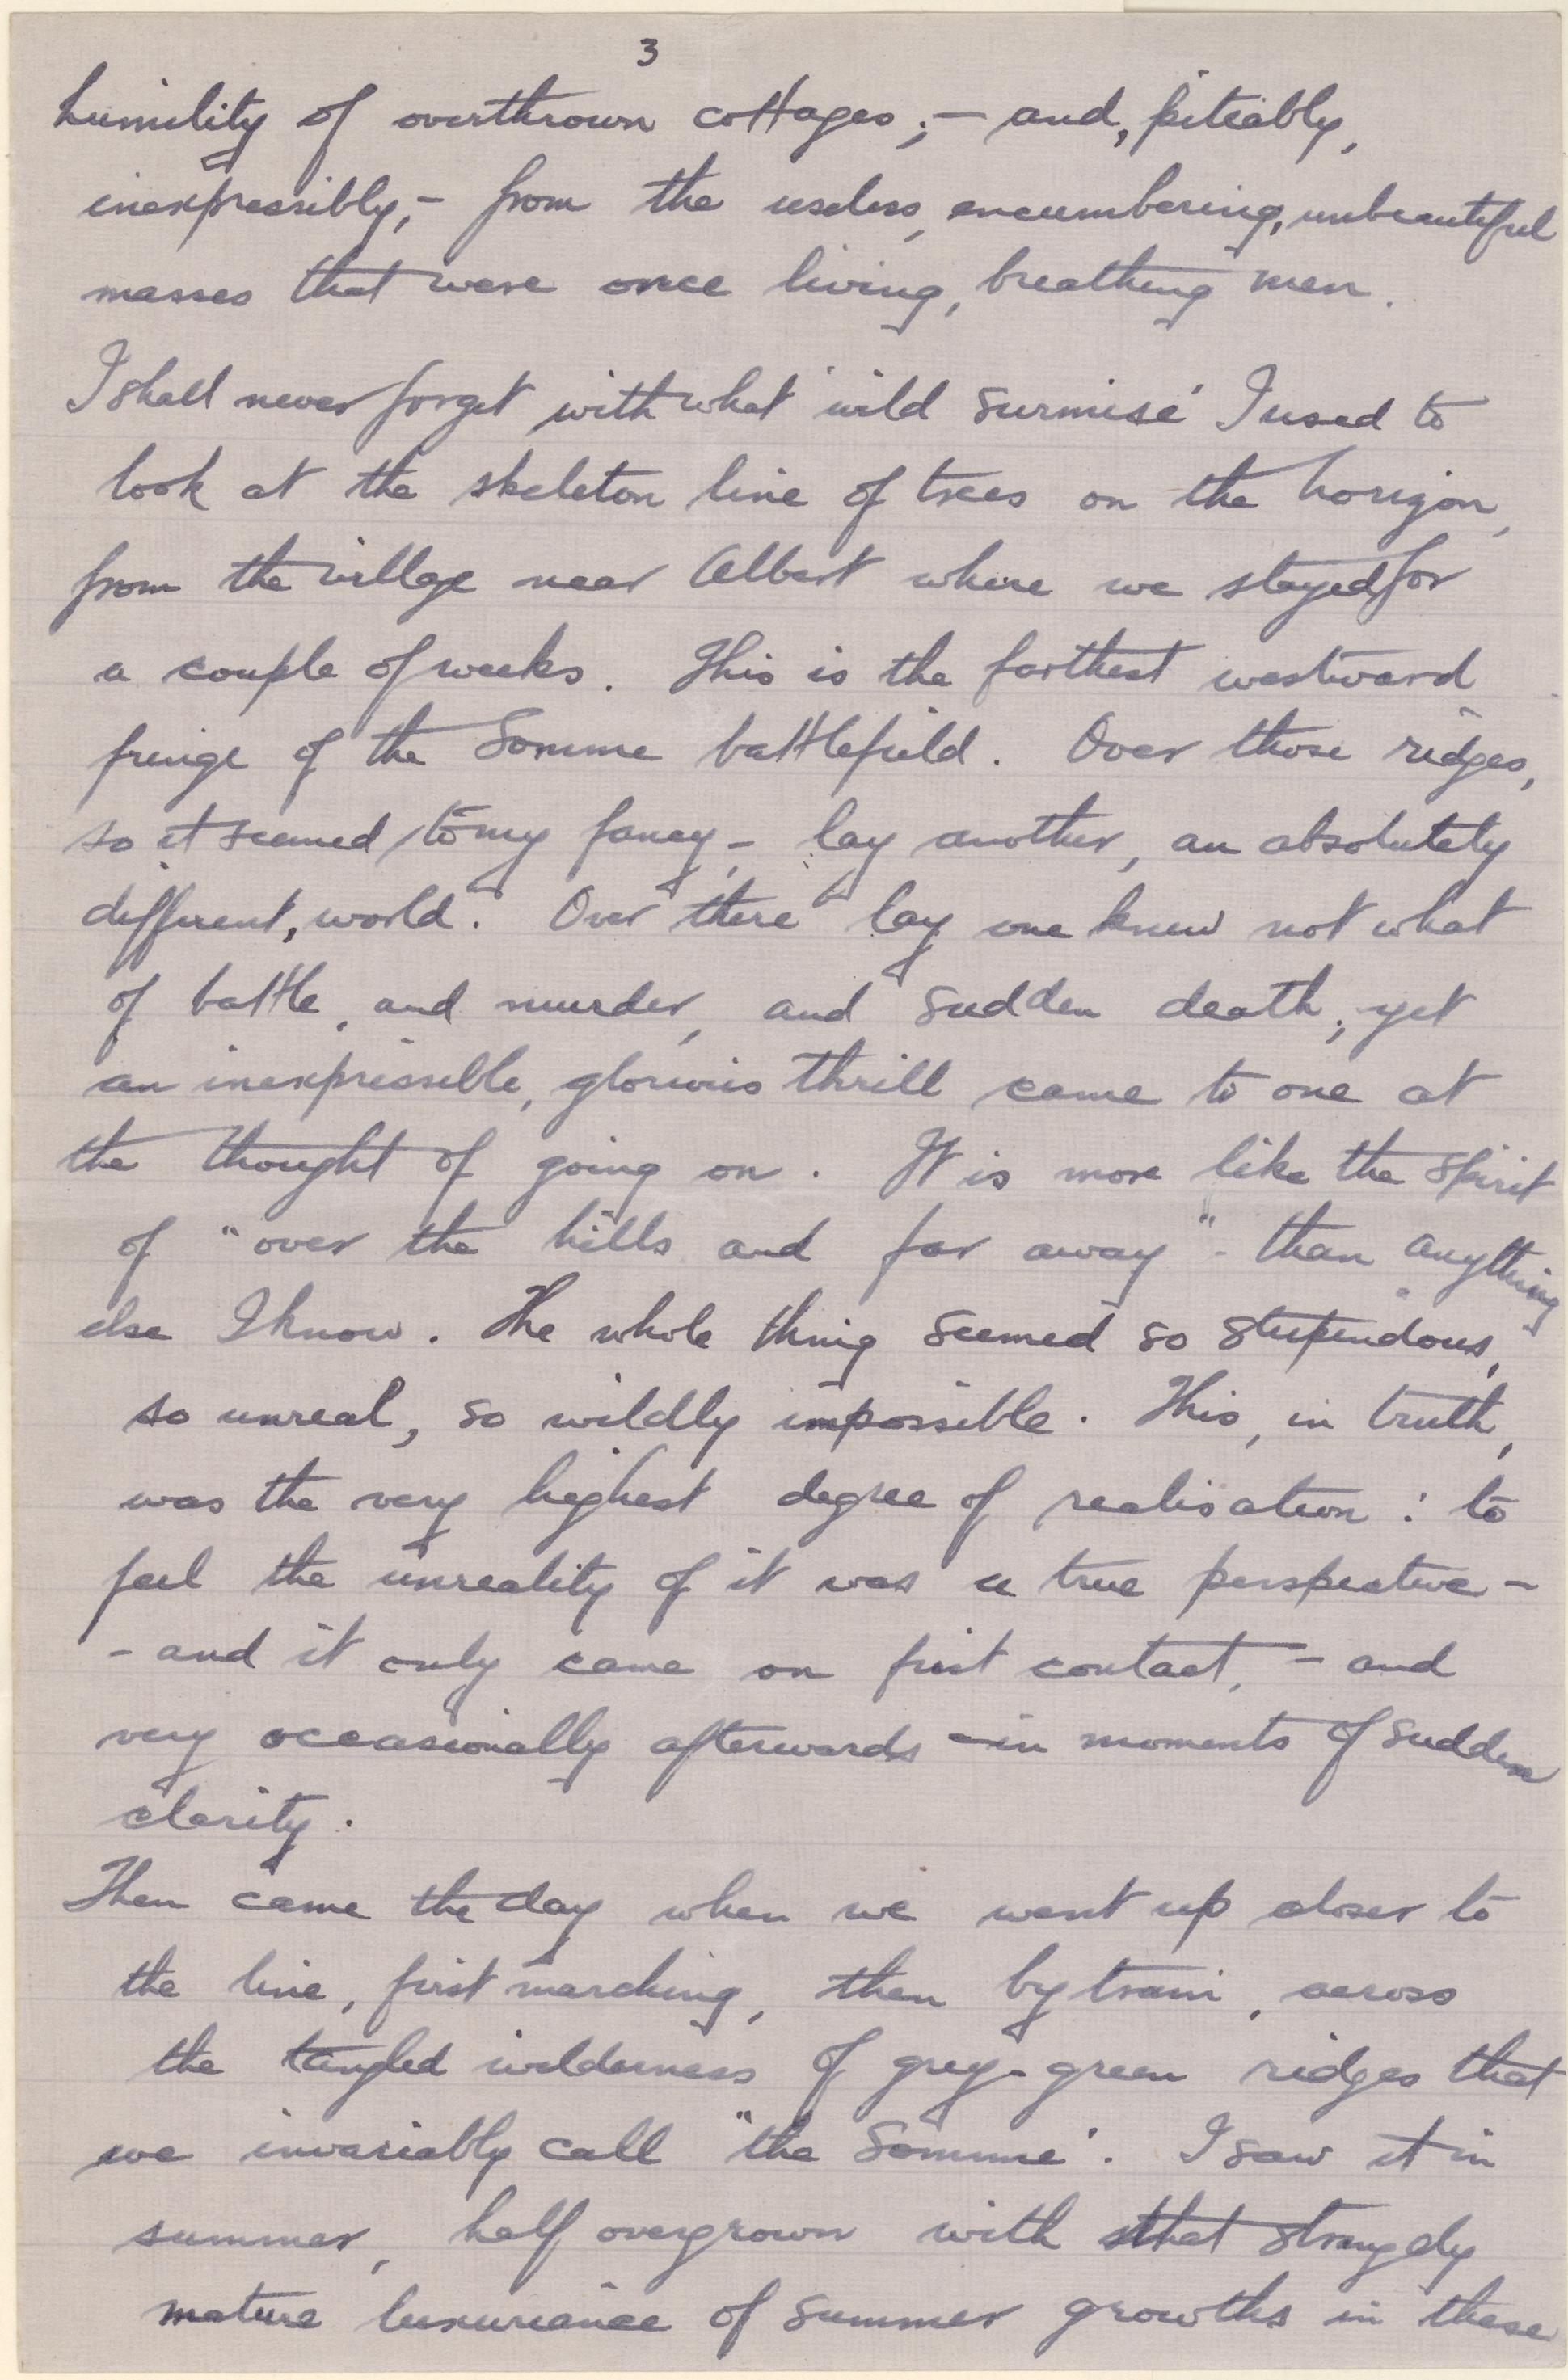 3
humility of overthrown cottages; — and, piteably,
inexpressibly, — from the useless, encumbering, unbeautiful
masses that were once living, breathing men.
I shall never forget with what 'wild surmise' I used to
look at the skeleton line of trees on the horizon,
from the village near Albert where we stayed for
a couple of weeks. This is the farthest westward
fringe of the Somme battlefield. Over those ridges,
so it seemed to my fancy, — lay another, an absolutely
different, world. "Over there" lay one knew not what
of battle, and murder, and sudden death; yet
an inexpressible, glorious thrill came to one at
the thought of going on. It is more like the spirit
of "over the hills and far away" - than anything
else I know. The whole thing seemed so stupendous,
so unreal, so wildly impossible. This, in truth,
was the very highest degree of realisation: to
feel the unreality of it was a true perspective —
- and it only came on first contact, — and
very occasionally afterwards — in moments of sudden
clarity.
Then came the day when we went up closer to
the line, first marching, then by train, across
the tangled wilderness of grey-green ridges that
we invariably call "the Somme". I saw it in
summer, half overgrown with that strangely
mature luxuriance of summer growths in these